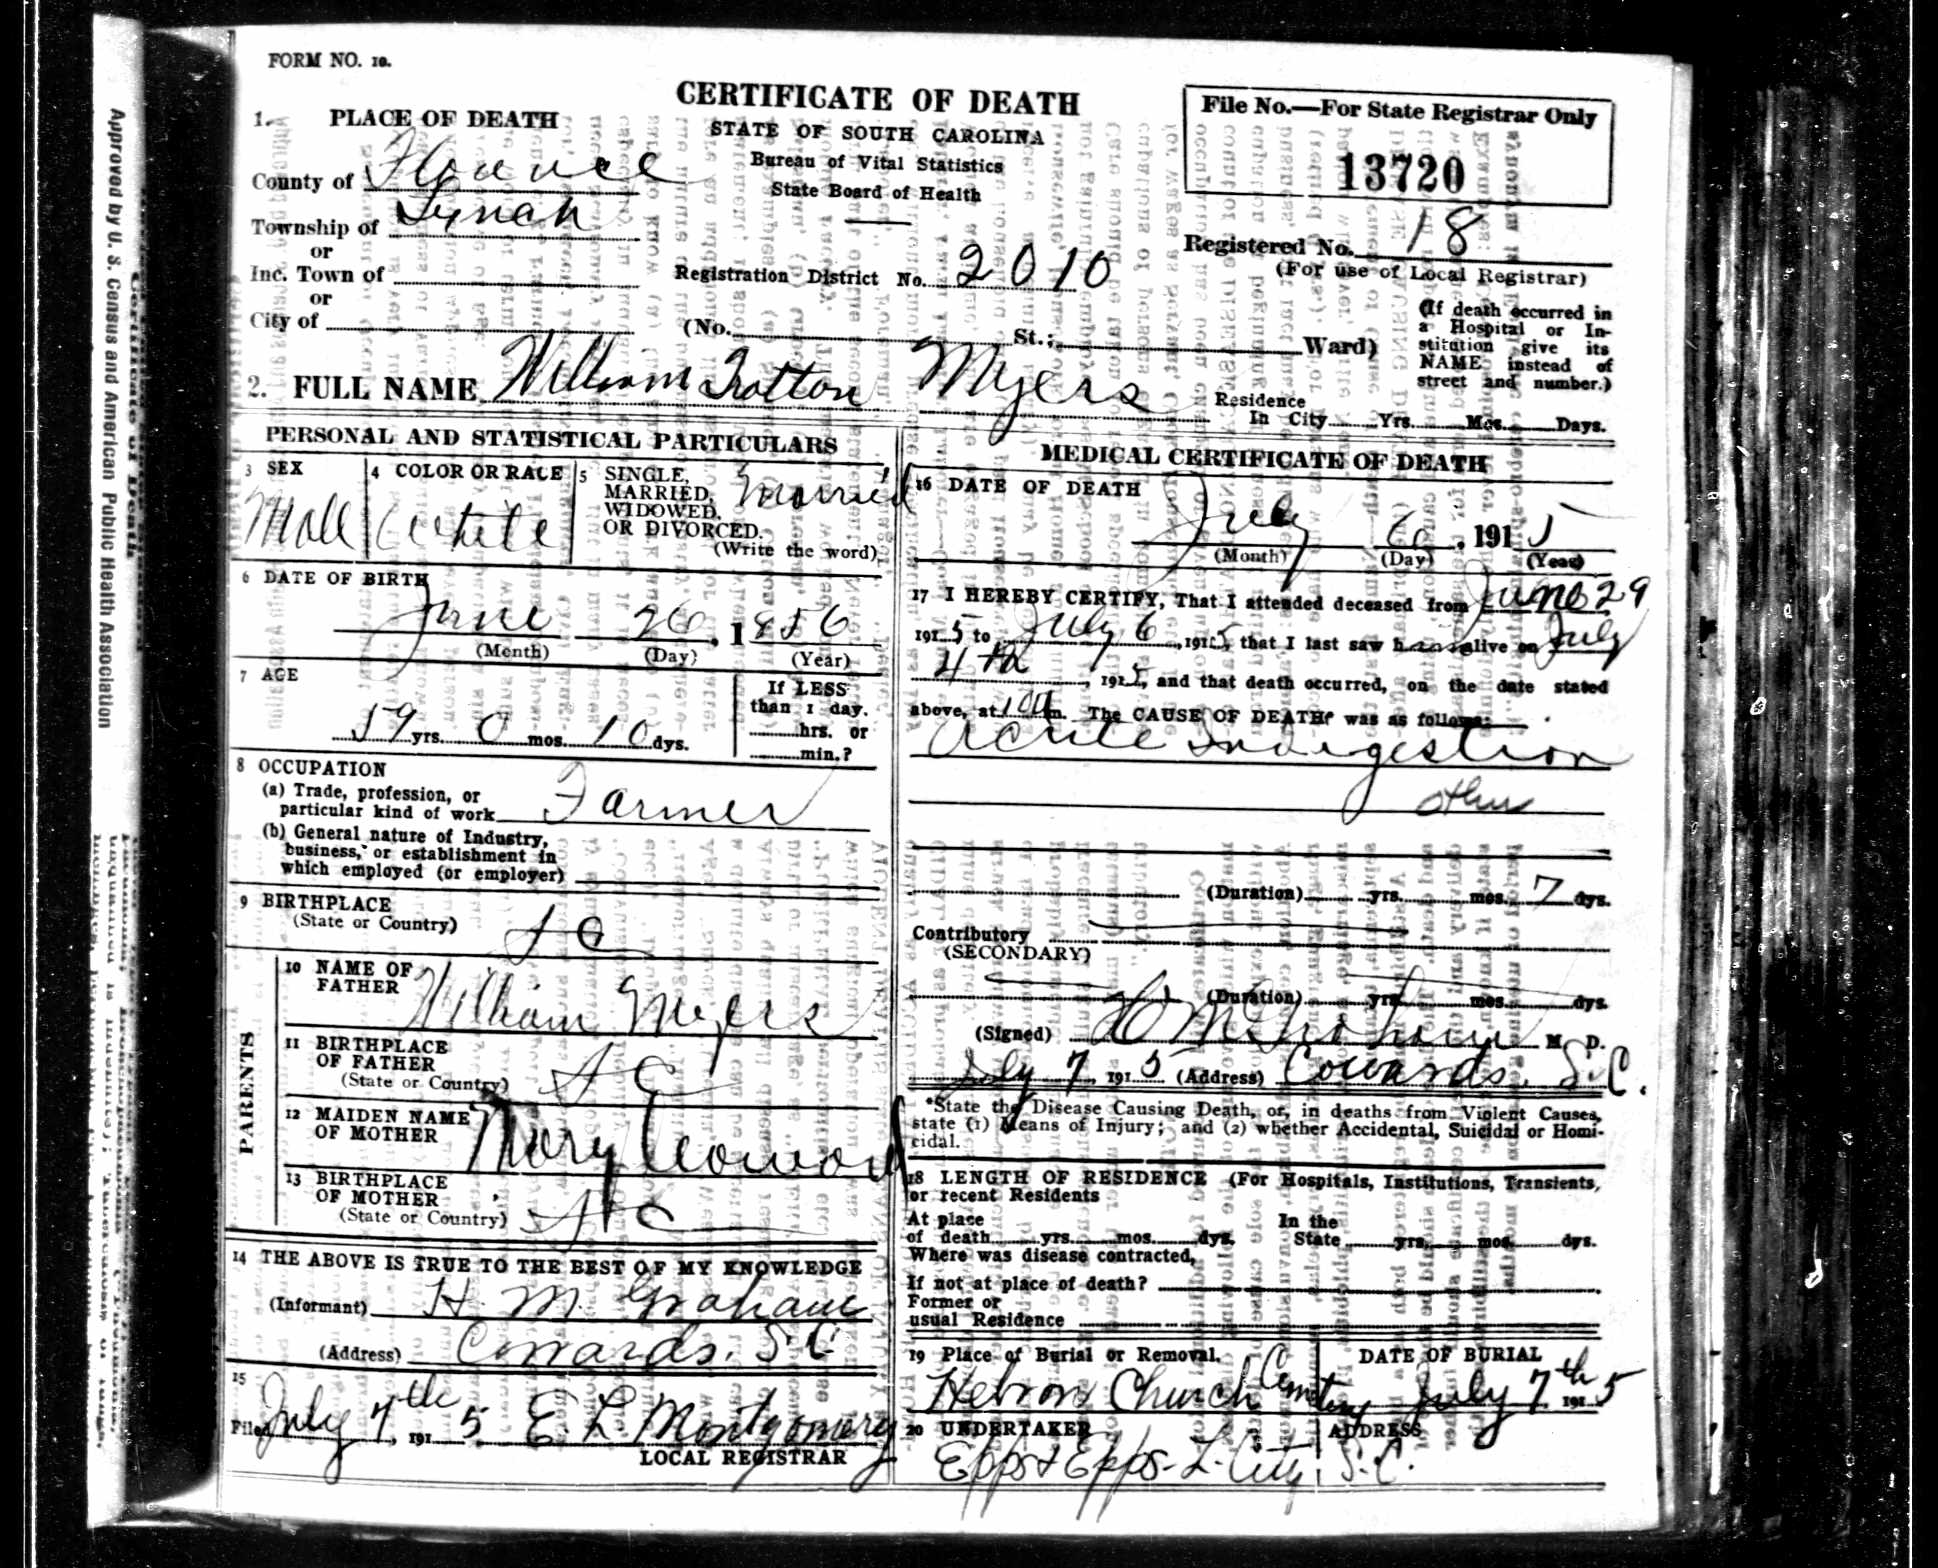 FORM NO. 10.
CERTIFICATE OF DEATH
STATE OF SOUTH CAROLINA
Bureau of Vital Statistics
State Board of Health
File No.—For State Registrar Only
13720
1. PLACE OF DEATH
County of Florence
Township of Lynch
or
Inc. Town of
or
City of
Registration District No. 2010
(No. St.; Ward)
Registered No. 18
(For use of Local Registrar)
(If death occurred in
a Hospital or In-
stitution give its
NAME instead of
street and number.)
2. FULL NAME William Trotton Myers
Residence
In City Yrs. Mos. Days.
PERSONAL AND STATISTICAL PARTICULARS
3 SEX
Male
4 COLOR OR RACE
White
5 SINGLE,
MARRIED,
WIDOWED,
OR DIVORCED.
(Write the word)
Married
6 DATE OF BIRTH
June 26, 1856
(Month) (Day) (Year)
7 AGE
59 yrs. 0 mos. 10 dys.
If LESS
than 1 day.
hrs. or
min.?
8 OCCUPATION
(a) Trade, profession, or
particular kind of work Farmer
(b) General nature of Industry,
business, or establishment in
which employed (or employer)
9 BIRTHPLACE
(State or Country)
S C
PARENTS
10 NAME OF
FATHER
William Myers
11 BIRTHPLACE
OF FATHER
(State or Country)
S C
12 MAIDEN NAME
OF MOTHER
Mary Coward
13 BIRTHPLACE
OF MOTHER
(State or Country)
S C
14 THE ABOVE IS TRUE TO THE BEST OF MY KNOWLEDGE
(Informant) H. M. Graham
(Address) Cowards, S C
15
Filed July 7th, 1915 E. L. Montgomery
LOCAL REGISTRAR
MEDICAL CERTIFICATE OF DEATH
16 DATE OF DEATH
July 6, 1915
(Month) (Day) (Year)
17 I HEREBY CERTIFY, That I attended deceased from June 29
1915 to July 6, 1915, that I last saw him alive on July
4th, 1915, and that death occurred, on the date stated
above, at m. The CAUSE OF DEATH* was as follows:
Acute Indigestion
other
(Duration) yrs. mos. 7 dys.
Contributory
(SECONDARY)
(Duration) yrs. mos. dys.
(Signed) H M Graham M. D.
July 7, 1915 (Address) Cowards, S.C.
*State the Disease Causing Death, or, in deaths from Violent Causes,
state (1) Means of Injury; and (2) whether Accidental, Suicidal or Homi-
cidal.
18 LENGTH OF RESIDENCE (For Hospitals, Institutions, Transients,
or recent Residents
At place
of death yrs. mos. dys.
In the
State yrs. mos. dys.
Where was disease contracted,
If not at place of death?
Former or
usual Residence
19 Place of Burial or Removal.
Hebron Church Cemtery
DATE OF BURIAL
July 7th 1915
20 UNDERTAKER
Epps & Epps - L. City, S.C.
ADDRESS
Approved by U. S. Census and American Public Health Association